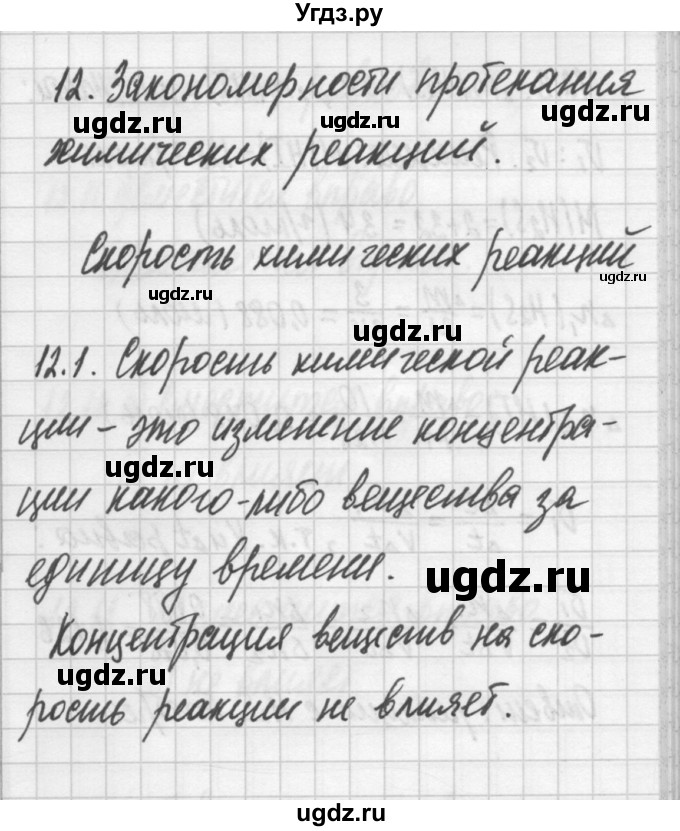 Угдз.ру
12. Закономерности протекания
ugdz.ru ugdz.ru
химических реакций.
Скорость химических реакций
ugdz.ru ugdz.ru
ugdz.ru
12.1. Скорость химической реак-
ции – это изменение концентра-
ugdz.ru
ции какого-либо вещества за
единицу времени.
ugdz.ru
Концентрация веществ на ско-
ugdz.ru
рость реакции не влияет.
ugdz.ru